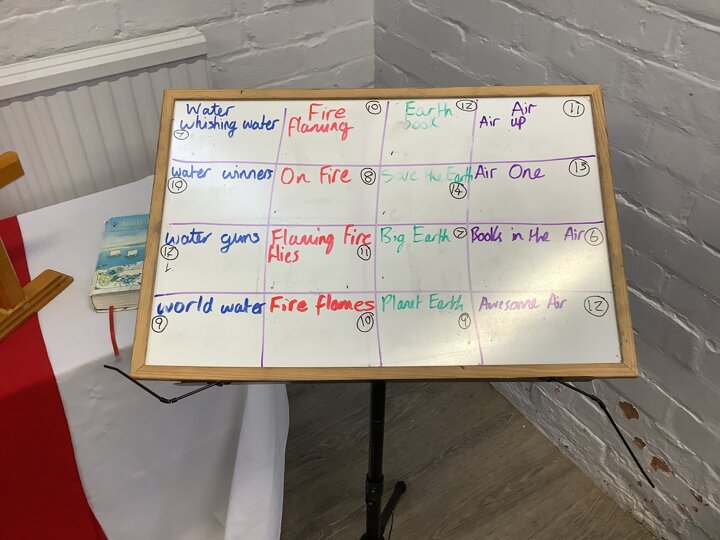 Water
whishing water
7
Fire 10
flaming
Earth 12
Air 11
Air up
water winners
10
On Fire 8
Save the Earth
14
Air One 13
water guns
12
Flaming Fire
flies 11
Big Earth 7
Books in the Air 6
world water
9
Fire flames
10
Planet Earth
9
Awesome Air 12